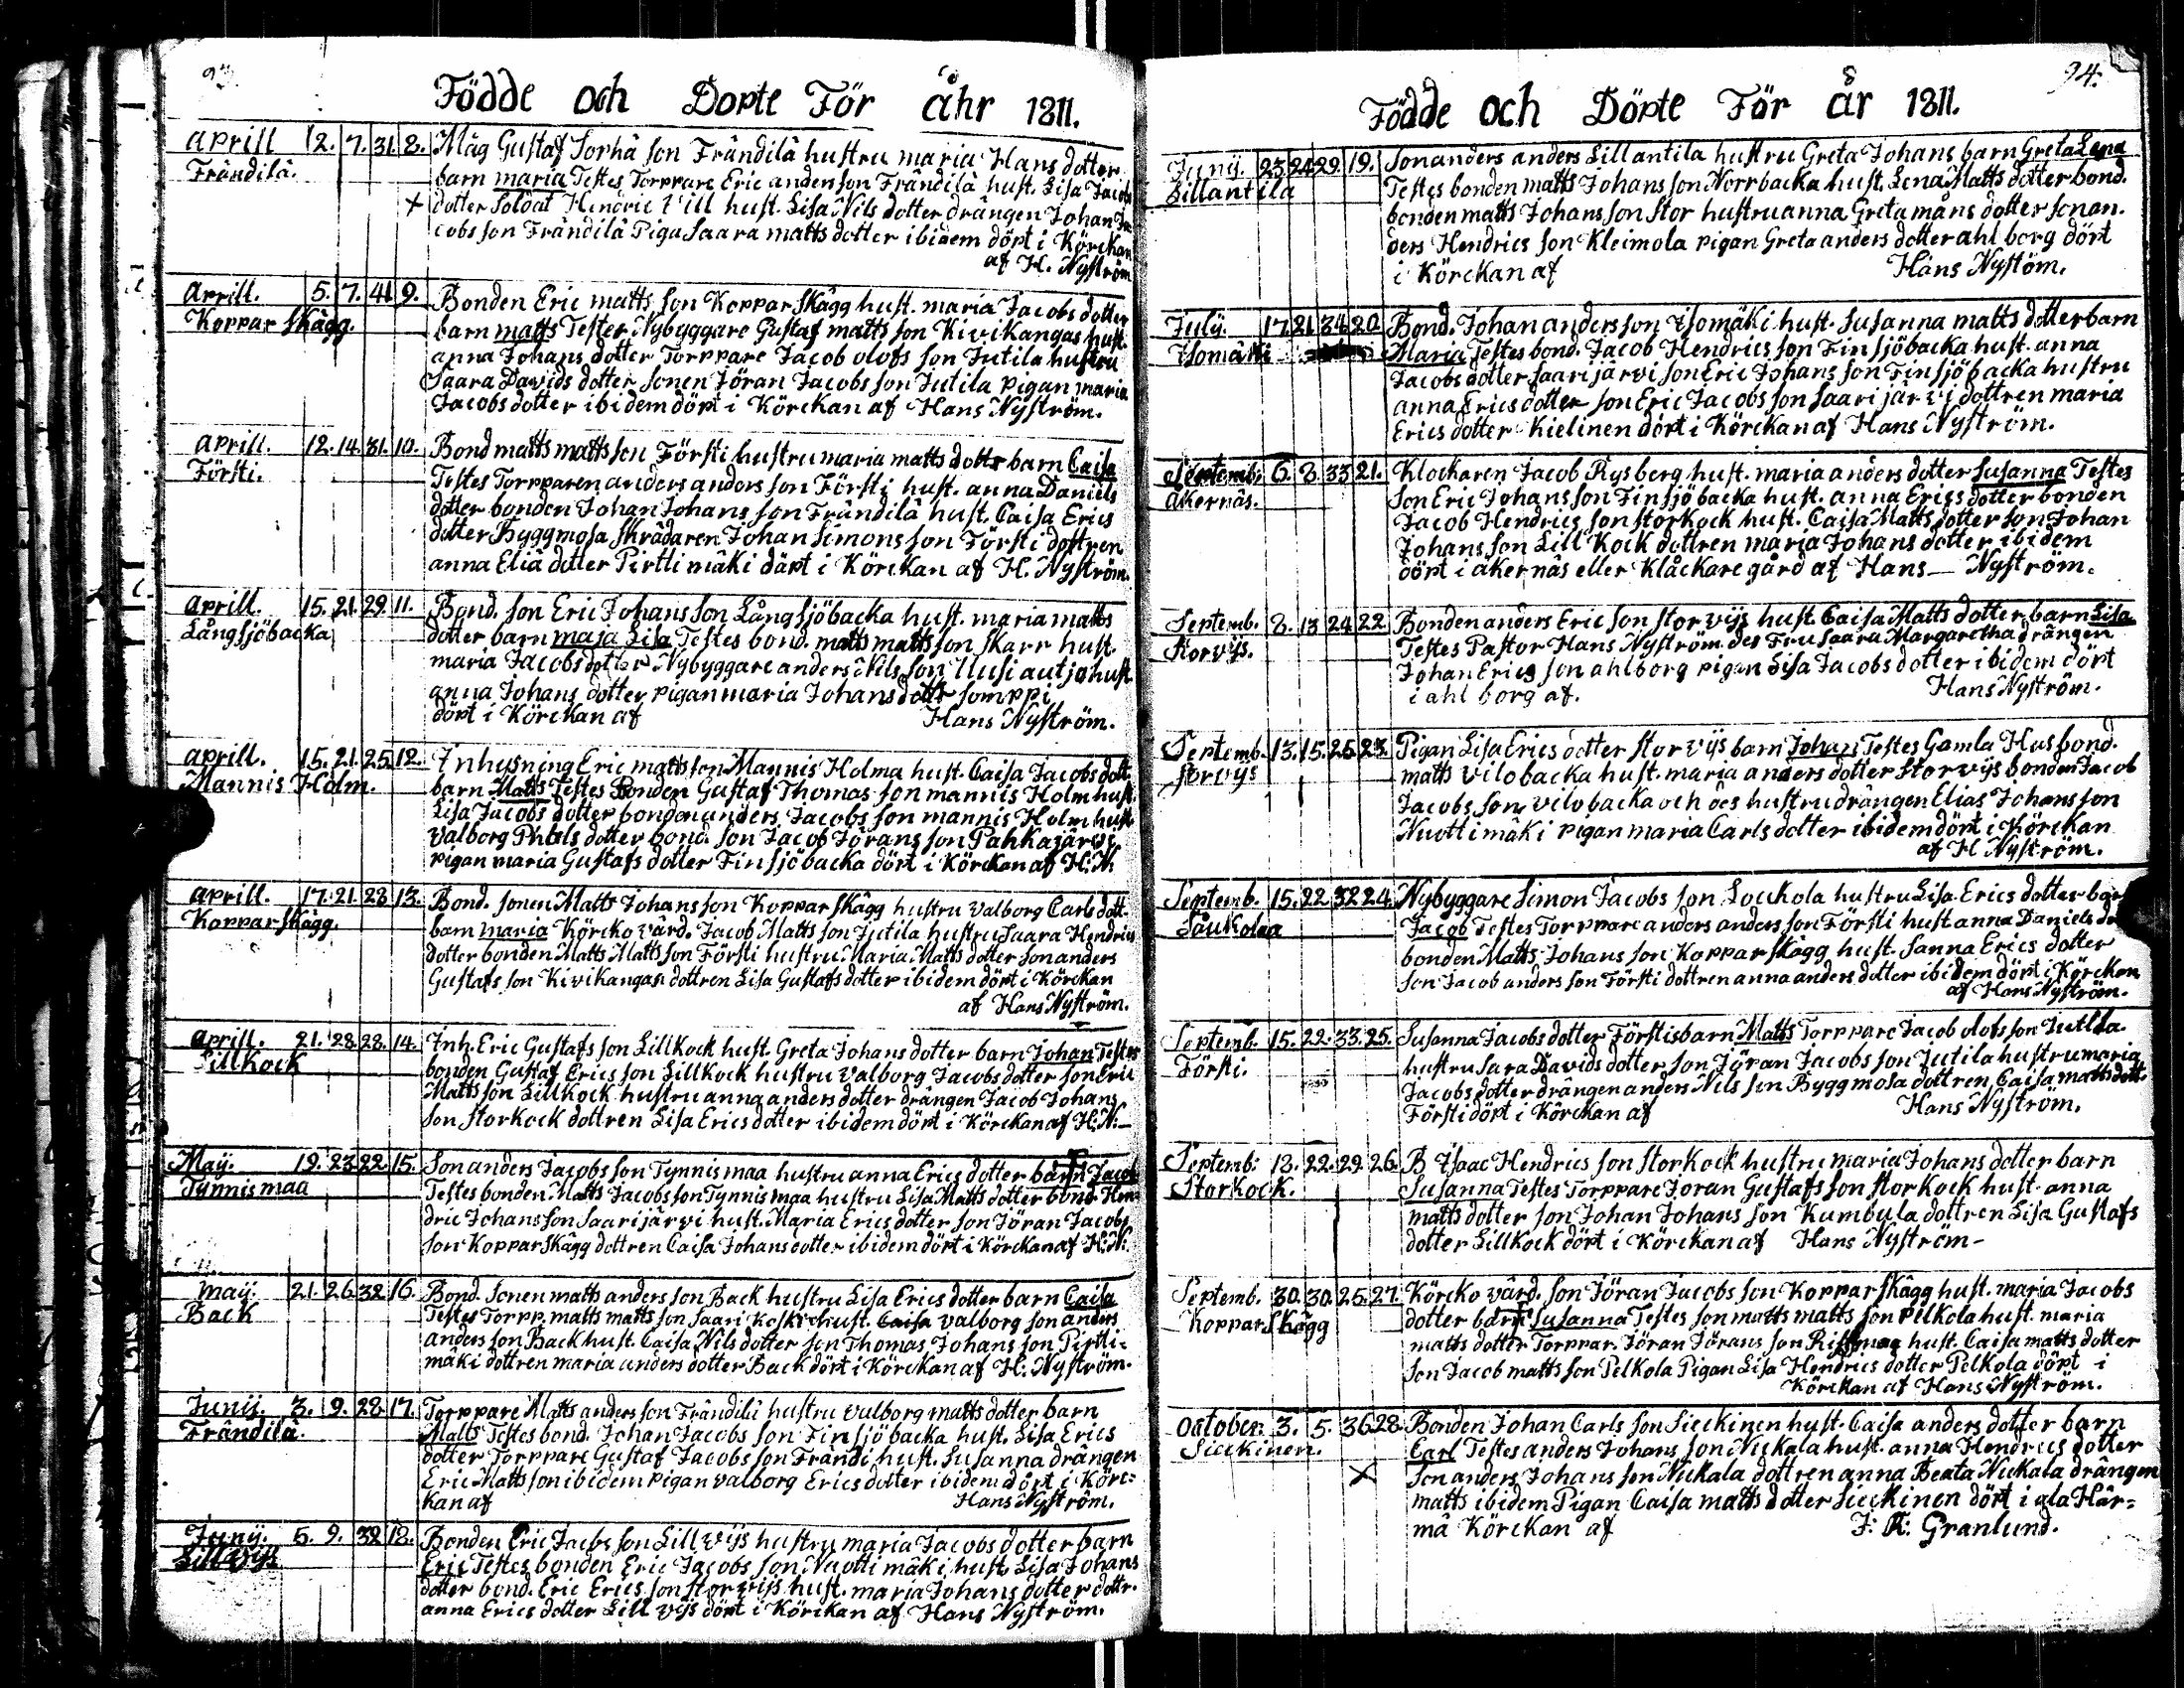 93
Födde och Dopte För åhr 1811.
Aprill 12. 7. 31. 8. Måg Gustaf Jorhå son Frändilä hustru maria Hans dotter
Frändilä. barn maria Testes Torppare Eric anderson Frändilä hust. Lisa Jacobs
dotter Soldat Hendric Vill hust. Lisa Nils dotter drängen Johan Ja
cobs son Frändilä Piga Saara matts dotter ibidem döpt i Körckan
af H. Nyström
Aprill. 5. 7. 41 9. Bonden Eric matts son Koppar skägg hust. maria Jacobs dotter
Koppar skägg. barn matts Tester Nybyggare Gustaf matts son Kivikangas hust.
anna Johans dotter Torppare Jacob olofs son Jutila hustru
Saara Davids dotter sonen Jöran Jacobs son Jutila pigan maria
Jacobs dotter ibidem döpt i Körckan af Hans Nyström.
Aprill. 12. 14. 31. 10. Bond matts matts son Försti hustru maria matts dottr barn Caisa
Försti. Testes Torpparen anders anders son Försti hust. anna Daniels
dotter bonden Johan Johans son Frändilä hust. Caisa Erics
dotter Byggmosa skrädaren Johan Simons son Försti dottren
anna Eliä dotter Pirtti mäki däpt i Körckan af H. Nyström.
Aprill. 15. 21. 29. 11. Bond. son Eric Johans son Långsjöbacka hust. maria matts
Långsjöbacka dotter barn maja Lisa Testes bond. matts matts son Skarr hust.
maria Jacobs dotter Nybyggare anders Nils son Uusi autjo hust.
anna Johans dotter pigan maria Johans dottr somppi
döpt i Körckan af Hans Nyström.
Aprill. 15. 21. 25. 12. Inhysning Eric matts son Mannis Holma hust. Caisa Jacobs dott.
Mannis Holm. barn Matts Testes Bonden Gustaf Thomas son mannis Holm hust.
Lisa Jacobs dotter bonden anders Jacobs son mannis Holm hust.
Valborg Phels dotter bond. son Jacob Jörans son Pahkajärvi
pigan maria Gustafs dotter Finsjöbacka döpt i Körckan af H: N
Aprill. 17. 21. 28. 13. Bond. sonen Matts Johans son Koppar skägg hustru valborg Carls dott.
Koppar skägg. barn maria Körcko värd. Jacob Matts son Jutila hustru Saara Hendrics
dotter bonden Matts Matts son Försti hustru Maria Matts dotter son anders
Gustafs son Kivikangas dottren Lisa Gustafs dotter ibidem döpt i Körckan
af Hans Nyström.
Aprill. 21. 28. 28. 14. Inh. Eric Gustafs son Lillkock hust. Greta Johans dotter barn Johan Testes
Lillkock bonden Gustaf Erics son Lillkock hustru valborg Jacobs dotter son Eric
Matts son Lillkock hustru anna anders dotter drängen Jacob Johans
son storkock dottren Lisa Erics dotter ibidem döpt i Körckan af H: N:
Maij. 19. 23. 22. 15. Son anders Jacobs son Tynnismaa hustru anna Erics dotter barn Jacob
Tynnismaa Testes bonden Matts Jacobs son Tynnismaa hustru Lisa Matts dotter bond. Hen
dric Johans son Saarijärvi hust. Maria Erics dotter son Jöran Jacobs
son Koppar skägg dottren Caisa Johans dotter ibidem döpt i Körckan af H: N:
May. 21. 26. 32. 16. Bond. Sonen matts anders son Back hustru Lisa Erics dotter barn Caisa
Back Testes Torpp. matts matts son Saari Koski hust. Caisa valborg son anders
anders son Back hust. Caisa Nils dotter son Thomas Johans son Pirtti-
mäki dottren maria anders dotter Back döpt i Körckan af H. Nyström.
Junij. 3. 9. 28. 17. Torppare Matts anders son Frändilä hustru valborg matts dotter barn
Frändilä. Matts Testes bond. Johan Jacobs son Finsjöbacka hust. Lisa Erics
dotter Torppare Gustaf Jacobs son Frändi hust. Susanna drängen
Eric Matts son ibidem pigan valborg Erics dotter ibidem döpt i Körc=
kan af Hans Nyström.
Junij. 5. 9. 32 18. Bonden Eric Jacobs son Lill vijs hustru maria Jacobs dotter barn
Lill vijs Eric Testes bonden Eric Jacobs son Nuotti mäki hust. Lisa Johans
dotter bond. Eric Erics son stor vijs hust. maria Johans dotter dottr.
anna Erics dotter Lill vijs döpt i Körckan af Hans Nyström.
94.
Födde och Döpte För år 1811.
Junij. 23. 24. 29. 19. Son anders anders Lillantila hustru Greta Johans barn Greta Lena
Lillantila Testes bonden matts Johans son Norrbacka hust. Lena Matts dotter bond.
bonden matts Johans son Stor hustru anna Greta måns dotter son an.
ders Hendrics son Kleimola pigan Greta anders dotter ahlborg döpt
i Körckan af Hans Nyström.
Julij. 17. 21. 34. 20. Bond. Johan anders son Isomäki hust. Susanna matts dotter barn
Isomäki Maria Testes bond. Jacob Hendrics son Finsjöbacka hust. anna
Jacobs dotter Saarijärvi son Eric Johans son Finsjöbacka hustru
anna Erics dotter son Eric Jacobs son Saarijärvi dottren maria
Erics dotter Kielinen döpt i Körckan af Hans Nyström.
Septemb: 6. 8. 33. 21. Klockaren Jacob Rysberg hust. maria anders dotter Susanna Testes
akernäs. Son Eric Johans son Finsjöbacka hust. anna Erics dotter bonden
Jacob Hendrics son storkock hust. Caisa Matts dotter son Johan
Johans son Lill Kock dottren maria Johans dotter ibidem
döpt i akernäs eller Klåckare gård af Hans Nyström.
Septemb. 8. 13 24. 22. Bonden anders Eric son stor vijs hust. Caisa Matts dotter barn Lisa
Storvijs. Testes Pastor Hans Nyström des Fru Saara Margaretha drängen
Johan Erics son ahlborg pigan Lisa Jacobs dotter ibidem döpt
i ahlborg af. Hans Nyström.
Septemb. 13. 15. 25. 23. Pigan Lisa Erics dotter storvijs barn Johan Testes Gamla Husbond.
storvijs matts vilobacka hust. maria anders dotter storvijs bonden Jacob
Jacobs son vilobacka och des hustru drängen Elias Johans son
Nuottimäki pigan maria Carls dotter ibidem döpt i Körckan
af H Nyström.
Septemb. 15. 22. 32 24. Nybyggare Simon Jacobs son Louckola hustru Lisa Erics dotter
Laukolaa Jacob Testes Torppare anders anders son Försti hust anna Daniels
bonden Matts Johans son Koppar skägg hust. Sanna Erics dotter
son Jacob anders son Försti dottren anna anders dotter ibidem döpt i Körckan
af Hans Nyström.
Septemb. 15. 22. 33. 25. Susanna Jacobs dotter Förstis barn Matts Torppare Jacob olofs son Jutila.
Försti. hustru Sara Davids dotter son Jöran Jacobs son Jutila hustru maria
Jacobs dotter drängen anders Nils son Byggmosa dottren Caisa matts dott.
Försti döpt i Körckan af Hans Nyström.
Septemb: 18. 22. 29. 26. B Isaac Hendrics son storkock hustru maria Johans dotter barn
Storkock. Susanna Testes Torppare Joran Gustafs son storkock hust. anna
matts dotter son Johan Johans son Kumbula dottren Lisa Gustafs
dotter Lillkock döpt i Körckan af Hans Nyström-
Septemb. 30. 30. 25. 27. Körcko värd. son Jöran Jacobs son Koppar skägg hust. maria Jacobs
Koppar skägg dotter barn Susanna Testes son matts matts son pelkola hust. maria
matts dotter Torppar. Jöran Jörans son hust. Caisa matts dotter
son Jacob matts son Pelkola Pigan Lisa Hendrics dotter Pelkola döpt i
Körckan af Hans Nyström.
October 3. 5. 36. 28. Bonden Johan Carls son Sieckinen hust. Caisa anders dotter barn
Sieckinen. Carl Testes anders Johans son Nickala hust. anna Hendrics dotter
son anders Johans son Nickala dottren anna Beata Nickala drängen
matts ibidem Pigan Caisa matts dotter Sieckinen döpt i ala Här=
mä Körckan af J: R: Granlund.